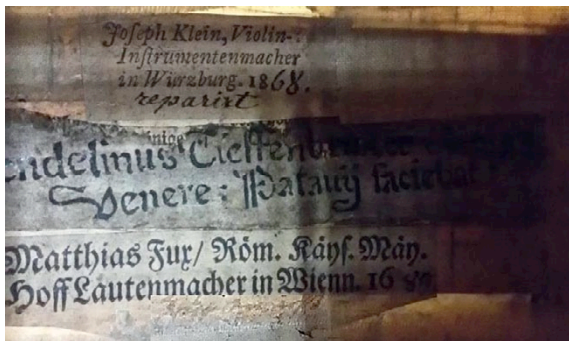 Joseph Klein, Violin-:
Instrumentenmacher
in Würzburg. 1868.
reparirt
endelinus Tieffenbrucker
Venere: Patauij faciebat
Matthias Fux/ Röm. Käys. Mäy.
Hoff Lautenmacher in Wienn. 16